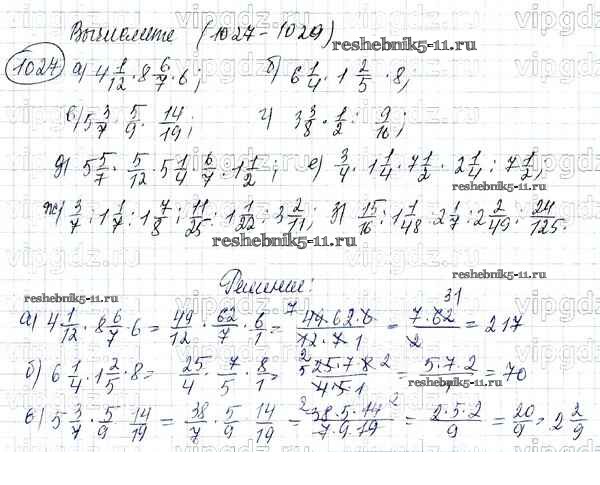 Вычислите (1027-1029)
reshebnik5-11.ru
1027 а) 4 1/12 · 8 6/7 · 6; б) 6 1/4 · 1 2/5 · 8;
в) 5 3/7 · 5/9 · 14/19; г) 3 3/8 · 1/2 : 9/16;
д) 5 5/7 · 5/12 · 5 1/4 · 6/7 · 1 1/2; е) 3/4 · 1 1/4 · 7 1/2 · 2 1/4 : 7 1/2;
reshebnik5-11.ru
ж) 3/7 : 1 1/7 : 1 7/8 : 11/25 : 1 1/22 : 3 2/11; з) 15/16 : 1 1/48 : 2 1/7 : 2 2/49 : 24/125.
reshebnik5-11.ru
Решение:
reshebnik5-11.ru
reshebnik5-11.ru
а) 4 1/12 · 8 6/7 · 6 = 49/12 · 62/7 · 6/1 = 49·62·6/12·7·1 = 7·62/2 = 217
б) 6 1/4 · 1 2/5 · 8 = 25/4 · 7/5 · 8/1 = 25·7·8/4·5·1 = 5·7·2/1 = 70
reshebnik5-11.ru
в) 5 3/7 · 5/9 · 14/19 = 38/7 · 5/9 · 14/19 = 38·5·14/7·9·19 = 2·5·2/9 = 20/9 = 2 2/9